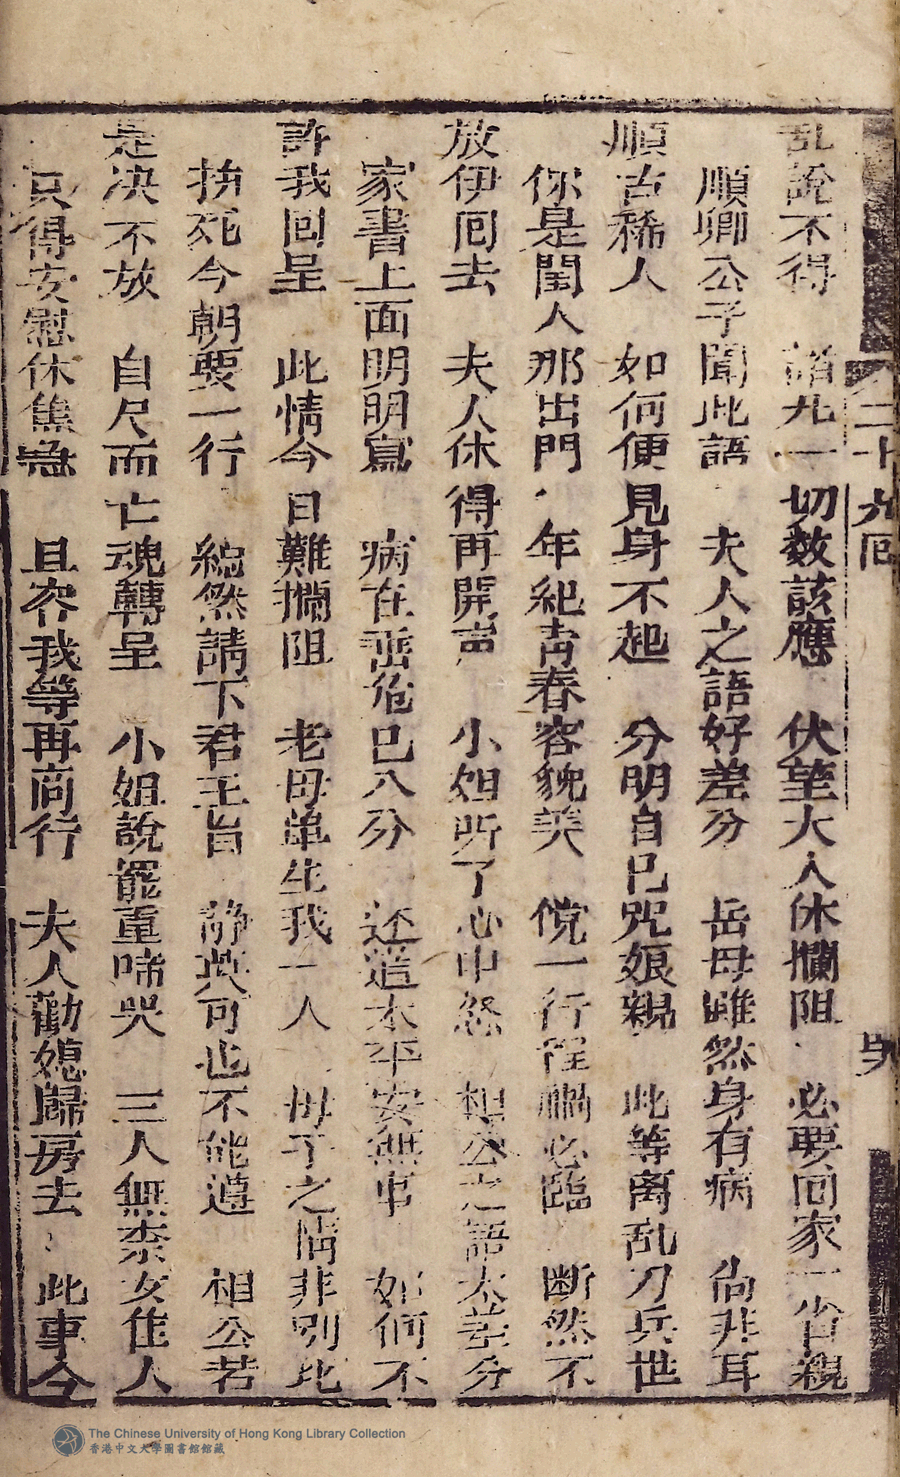 二十九囘
乱說不得 諸凡一切数該應 伏望大人休攔阻 必要囘家一省親
順卿公子聞此語 夫人之語好差分 岳母雖然身有病 尙非耳
順古稀人 如何便見身不起 分明自巳咒娘親 此等离乱刀兵世
你是閨人那出門 年紀青春容貌美 倘一行程禍必臨 断然不
放伊囘去 夫人休得再開声 小姐听了心中怒 相公之語太差分
家書上面明明寫 病在垂危巳八分 还道太平安無事 如何不
許我回呈 此情今日難攔阻 老母單生我一人 母子之情非别比
拚死今朝要一行 縱然請下君王旨 静英可也不能遵 相公若
是决不放 自尺而亡魂轉呈 小姐說罷重啼哭 三人無柰女佳人
只得安慰休焦急 且容我等再商行 夫人勸媳歸房去 此事今
The Chinese University of Hong Kong Library Collection
香港中文大學圖書館館藏